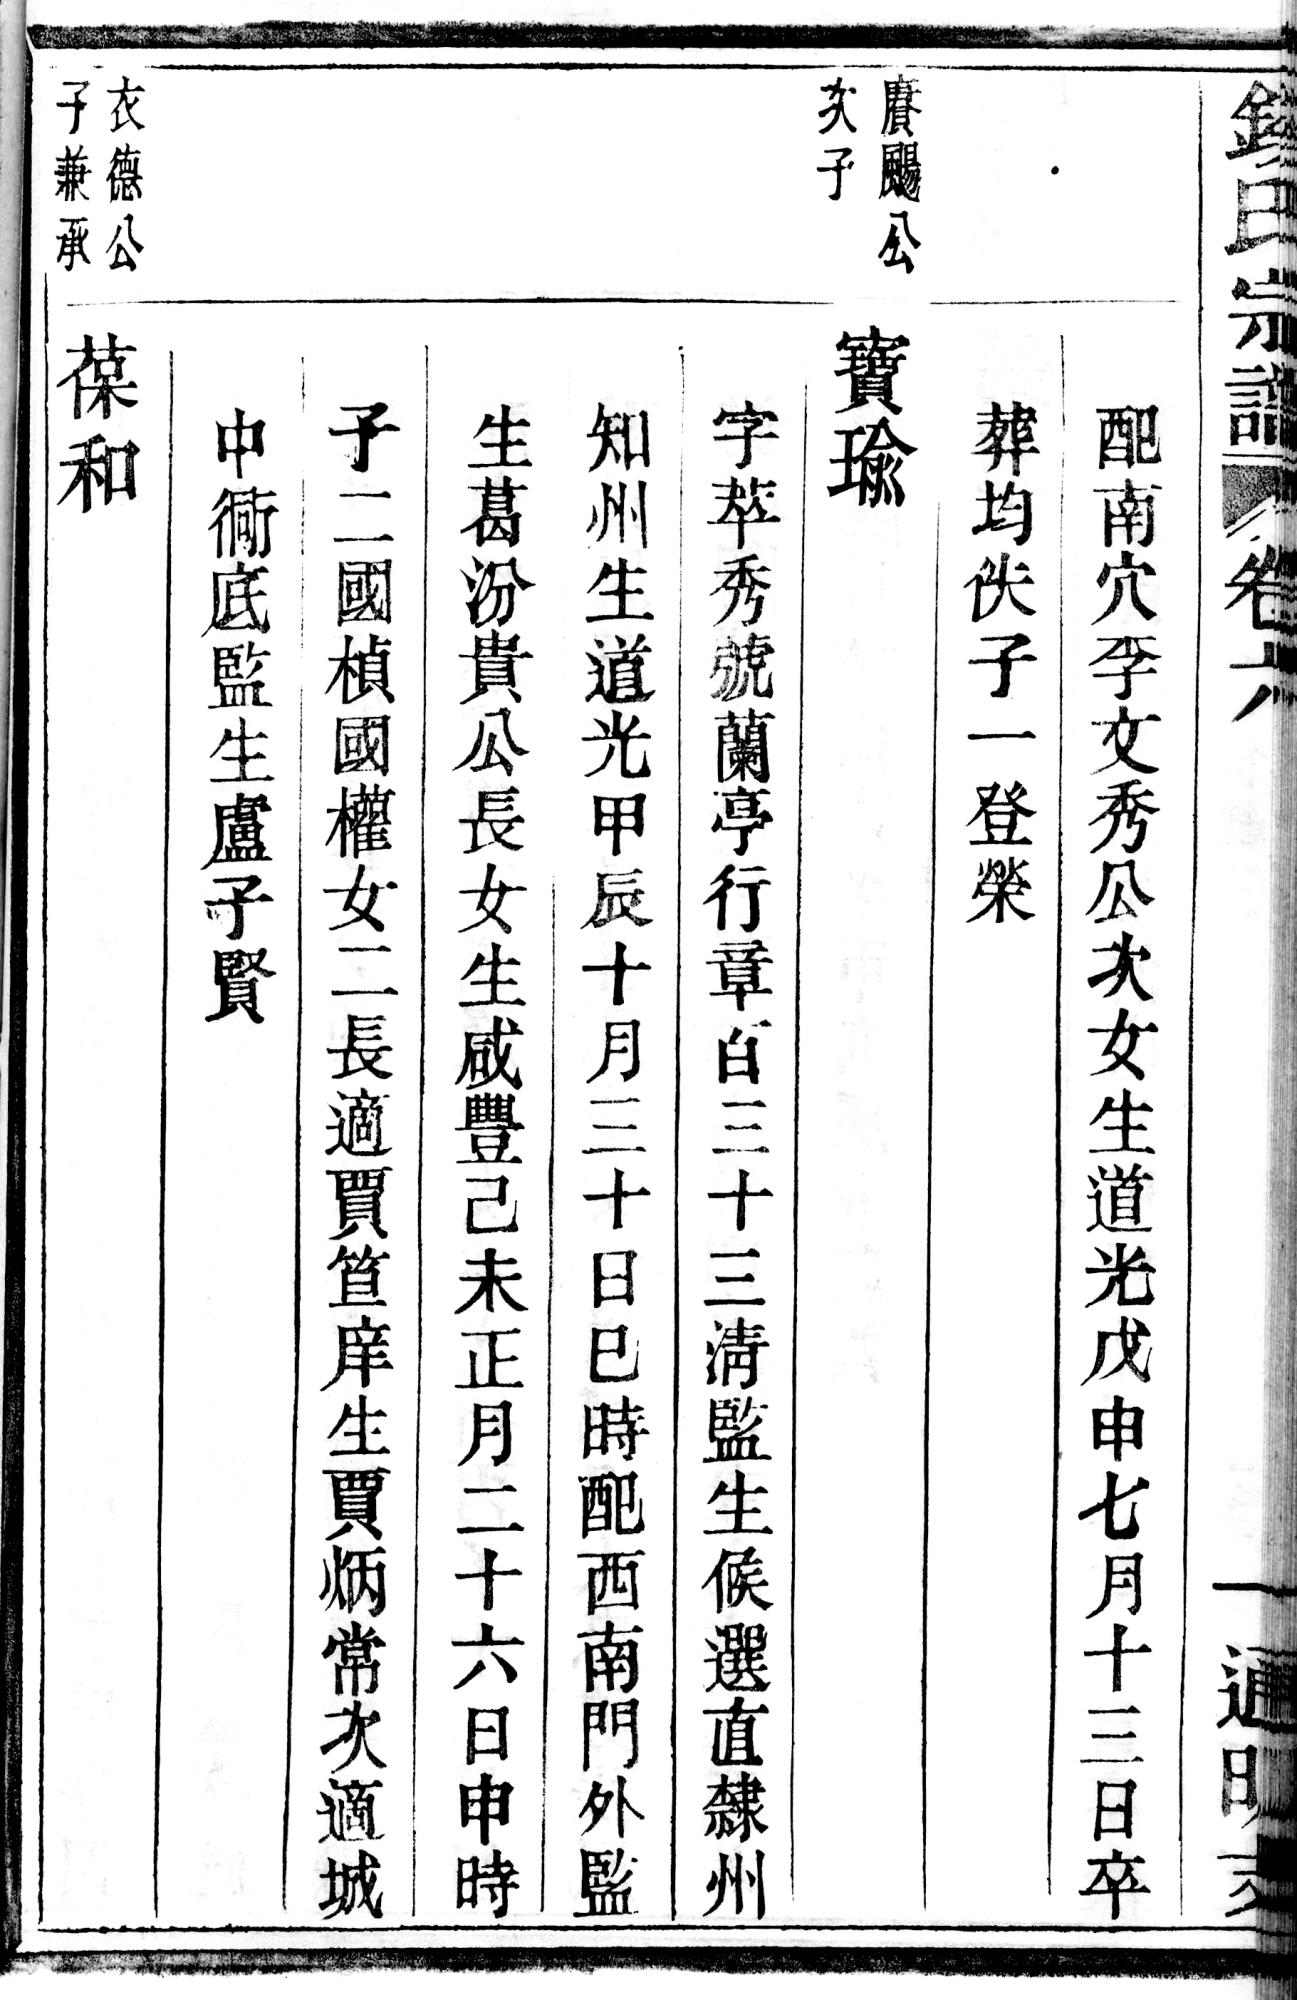 氏宗譜 卷六
配南穴李文秀公次女生道光戊申七月十三日卒
葬均佚子一登榮
賡颺公
次子
寶瑜
字萃秀號蘭亭行章百三十三淸監生候選直隸州
知州生道光甲辰十月三十日巳時配西南門外監
生葛汾貴公長女生咸豐己未正月二十六日申時
子二國楨國權女二長適賈笪庠生賈炳常次適城
中衕底監生盧子賢
衣德公
子兼承
葆和